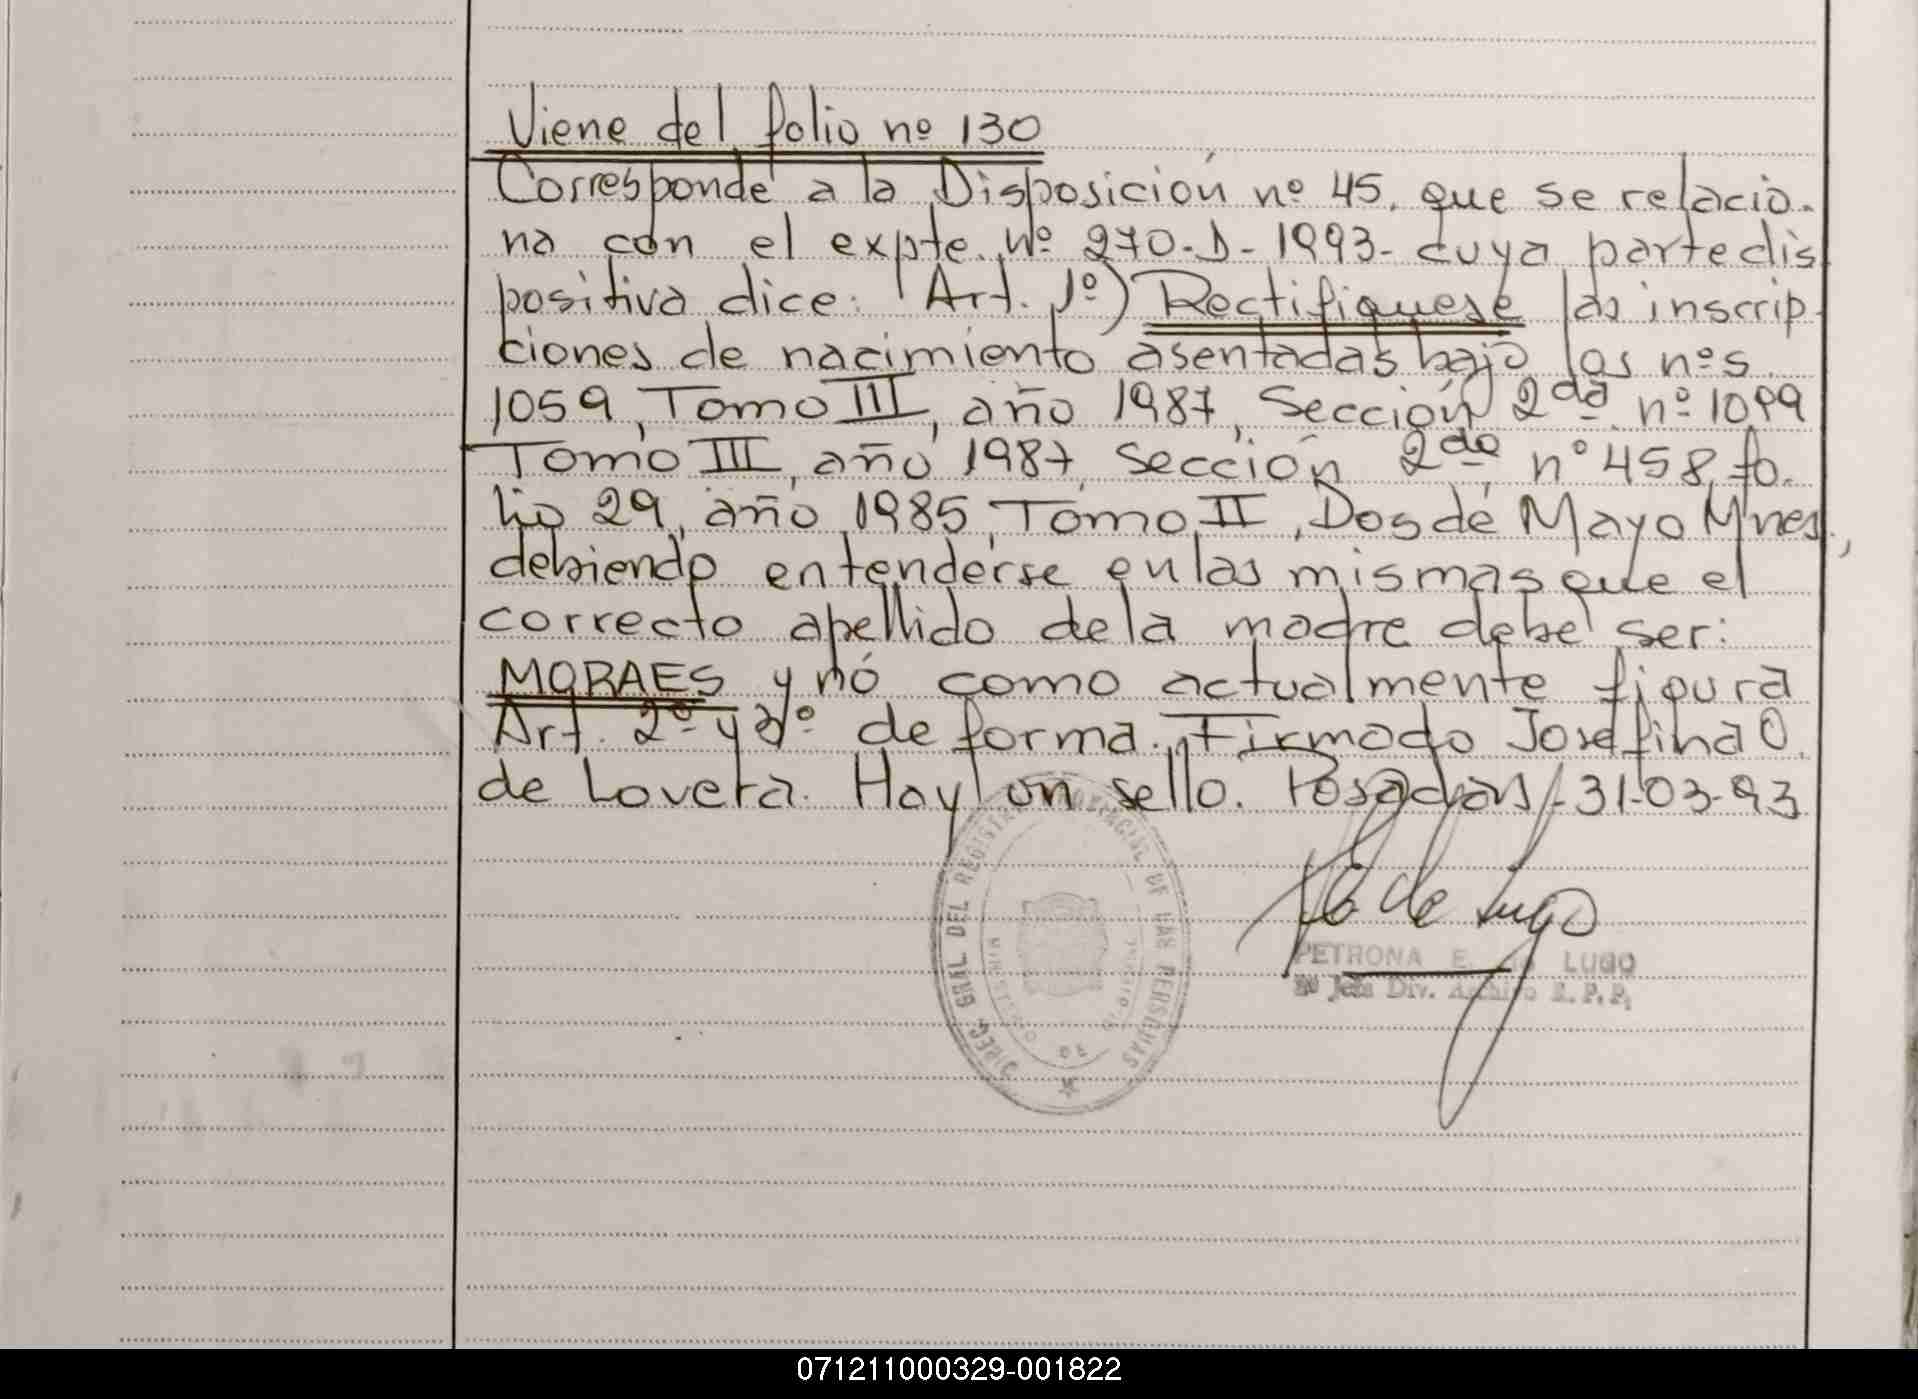 Viene del folio nº 130
Corresponde a la Disposición nº 45. que se relacio-
na con el expte. Nº 270-D-1993- cuya parte dis
positiva dice: "Art. 1º) Rectifiquese las inscrip-
ciones de nacimiento asentadas bajo los nºs
1059, Tomo III, año 1987, Sección 2da. nº 1099
Tomo III, año 1987, Sección 2da nº 458, fo-
lio 29, año 1985, Tomo II, Dos de Mayo Mnes.,
debiendo entenderse en las mismas que el
correcto apellido de la madre debe ser:
MORAES y nó como actualmente figura
Art. 2º y 3º de forma." Firmado Josefina O.
de Lovera. Hay un sello. Posadas, 31-03-93
DIREC. GRAL DEL REGISTRO PROVINCIAL DE LAS PERSONAS
MINISTERIO DE
de Lugo
PETRONA E. de LUGO
Jefa Div. Archivo R.P.P.
071211000329-001822